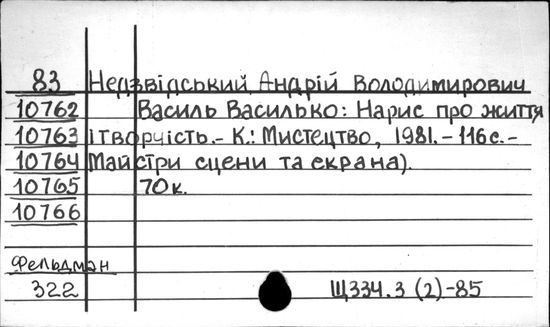 83 Недзвідський Андрій Володимирович
10762 Василь Василько: Нарис про життя
10763 і творчість.- К.: Мистецтво, 1981.- 116с.-
10764 Майстри сцени та екрана).
10765 70к.
10766
Фельдман
322 Щ334.3 (2)-85